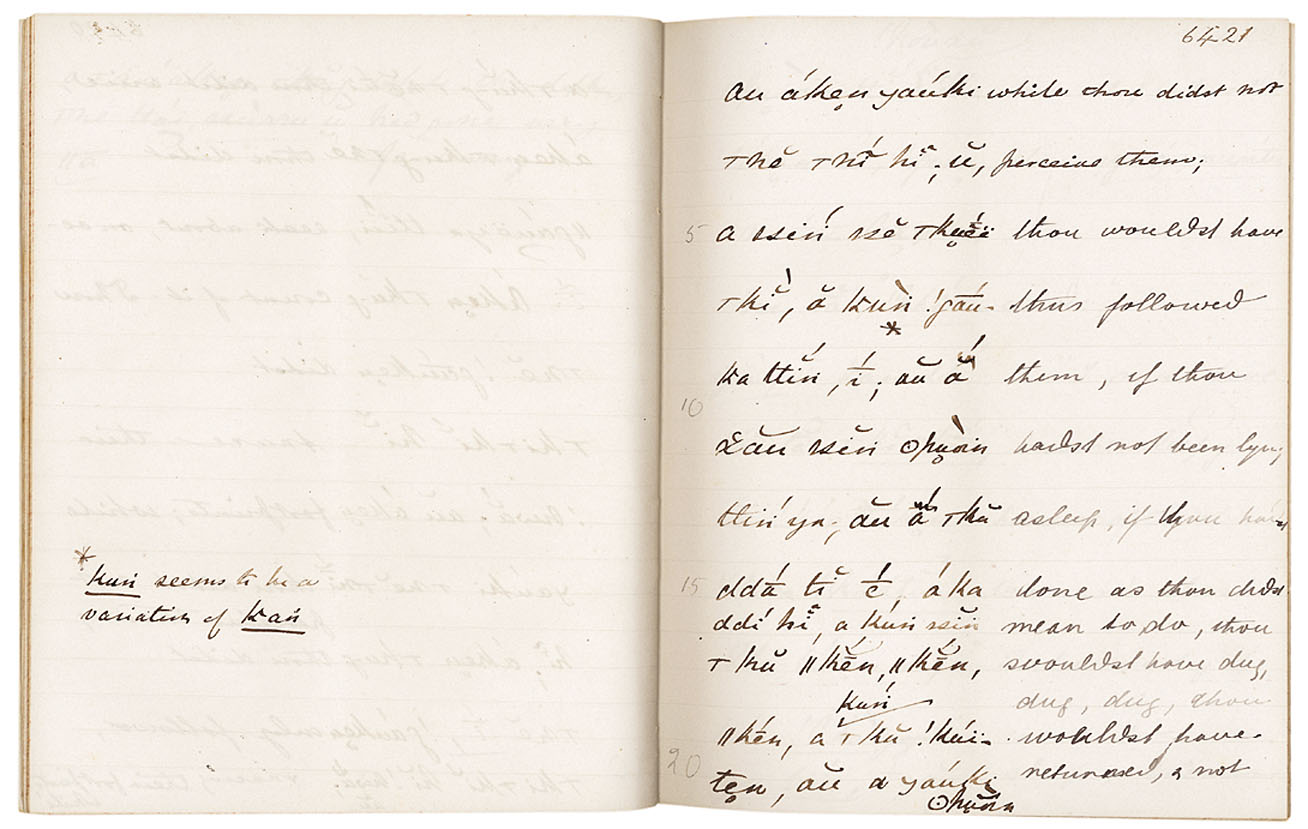 * kuń seems to be a
variation of k̆ań
6421
au áken̥ yaúki while thou didst not
⊤hĕ ⊤hĭ́ hĭ̃; ŭ, perceive them;
5 a sseń ssĕ thou wouldst have
⊤hĭ, ă kuǹ !gāú- thus followed
*
ka ttĭń, ī́; aŭ ắ them, if thou
10
ssĕn ʘpuoin hadst not been lying
ttiń ya; aŭ ắ ⊤kŭ asleep, if thou hadst
15 ddā́ tĭ ḗ, áka done as thou didst
ddí hĭ̃, a kúń ssĕn mean to do, thou
⊤kŭ ǁkĕ̄n, ǁkĕ̄n, wouldst have dug,
kuń dug, dug, thou
ǁkḗn, a ⊤kŭ !kúi- wouldst have
20
ten̥, aŭ a yaúki returned, & not
ʘpuoin